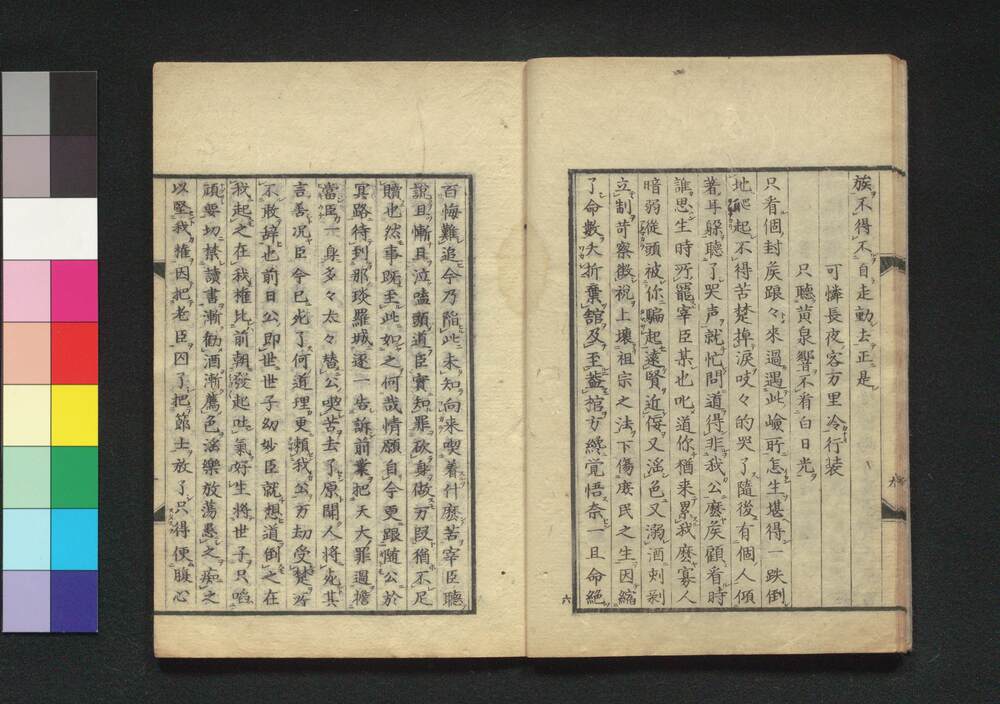 族不得不自走動去正是
可憐長夜客万里冷行装
只聽黄泉響不看白日光
只看個封矦踉々来過遇此嶮所怎生堪得一跌倒
地爬起不得苦楚掉淚吱々的哭了隨後有個人傾
著耳躱聽了哭声就忙問道得非我公麼矦顧看時
誰思生時所寵宰臣某也叱道你猶来累我麼寡人
暗弱從頭被你騙起遠賢近侮又滛色又溺酒刺剥
立制苛察徵税上壊祖宗之法下傷庶民之生因縮
了命數夭折棄舘及至蓋棺方纔覚悟奈一旦命絶
六
百悔難追今乃陥此未知向来喫着什麼苦宰臣聽
說且慚且泣嗑頭道臣實知罪砍身做万段猶不足
贖也然事既至此如之何哉情願自今更跟随公於
冥路待到那琰羅城逐一告訴前業把天大罪過擔
當臣一身多々太々替公喫苦去了原聞人將死其
言善况臣今已死了何道理更頼我公万劫受楚所
不敢辞也前日公即世世子幼妙臣就想道倒之在
我起之在我權比前朝發起吐氣好生將世子只啗
頑要切禁讀書漸勧酒漸薦色滛樂放蕩愚之痴之
以堅我權因把老臣囚了把節士放了只得便腹心